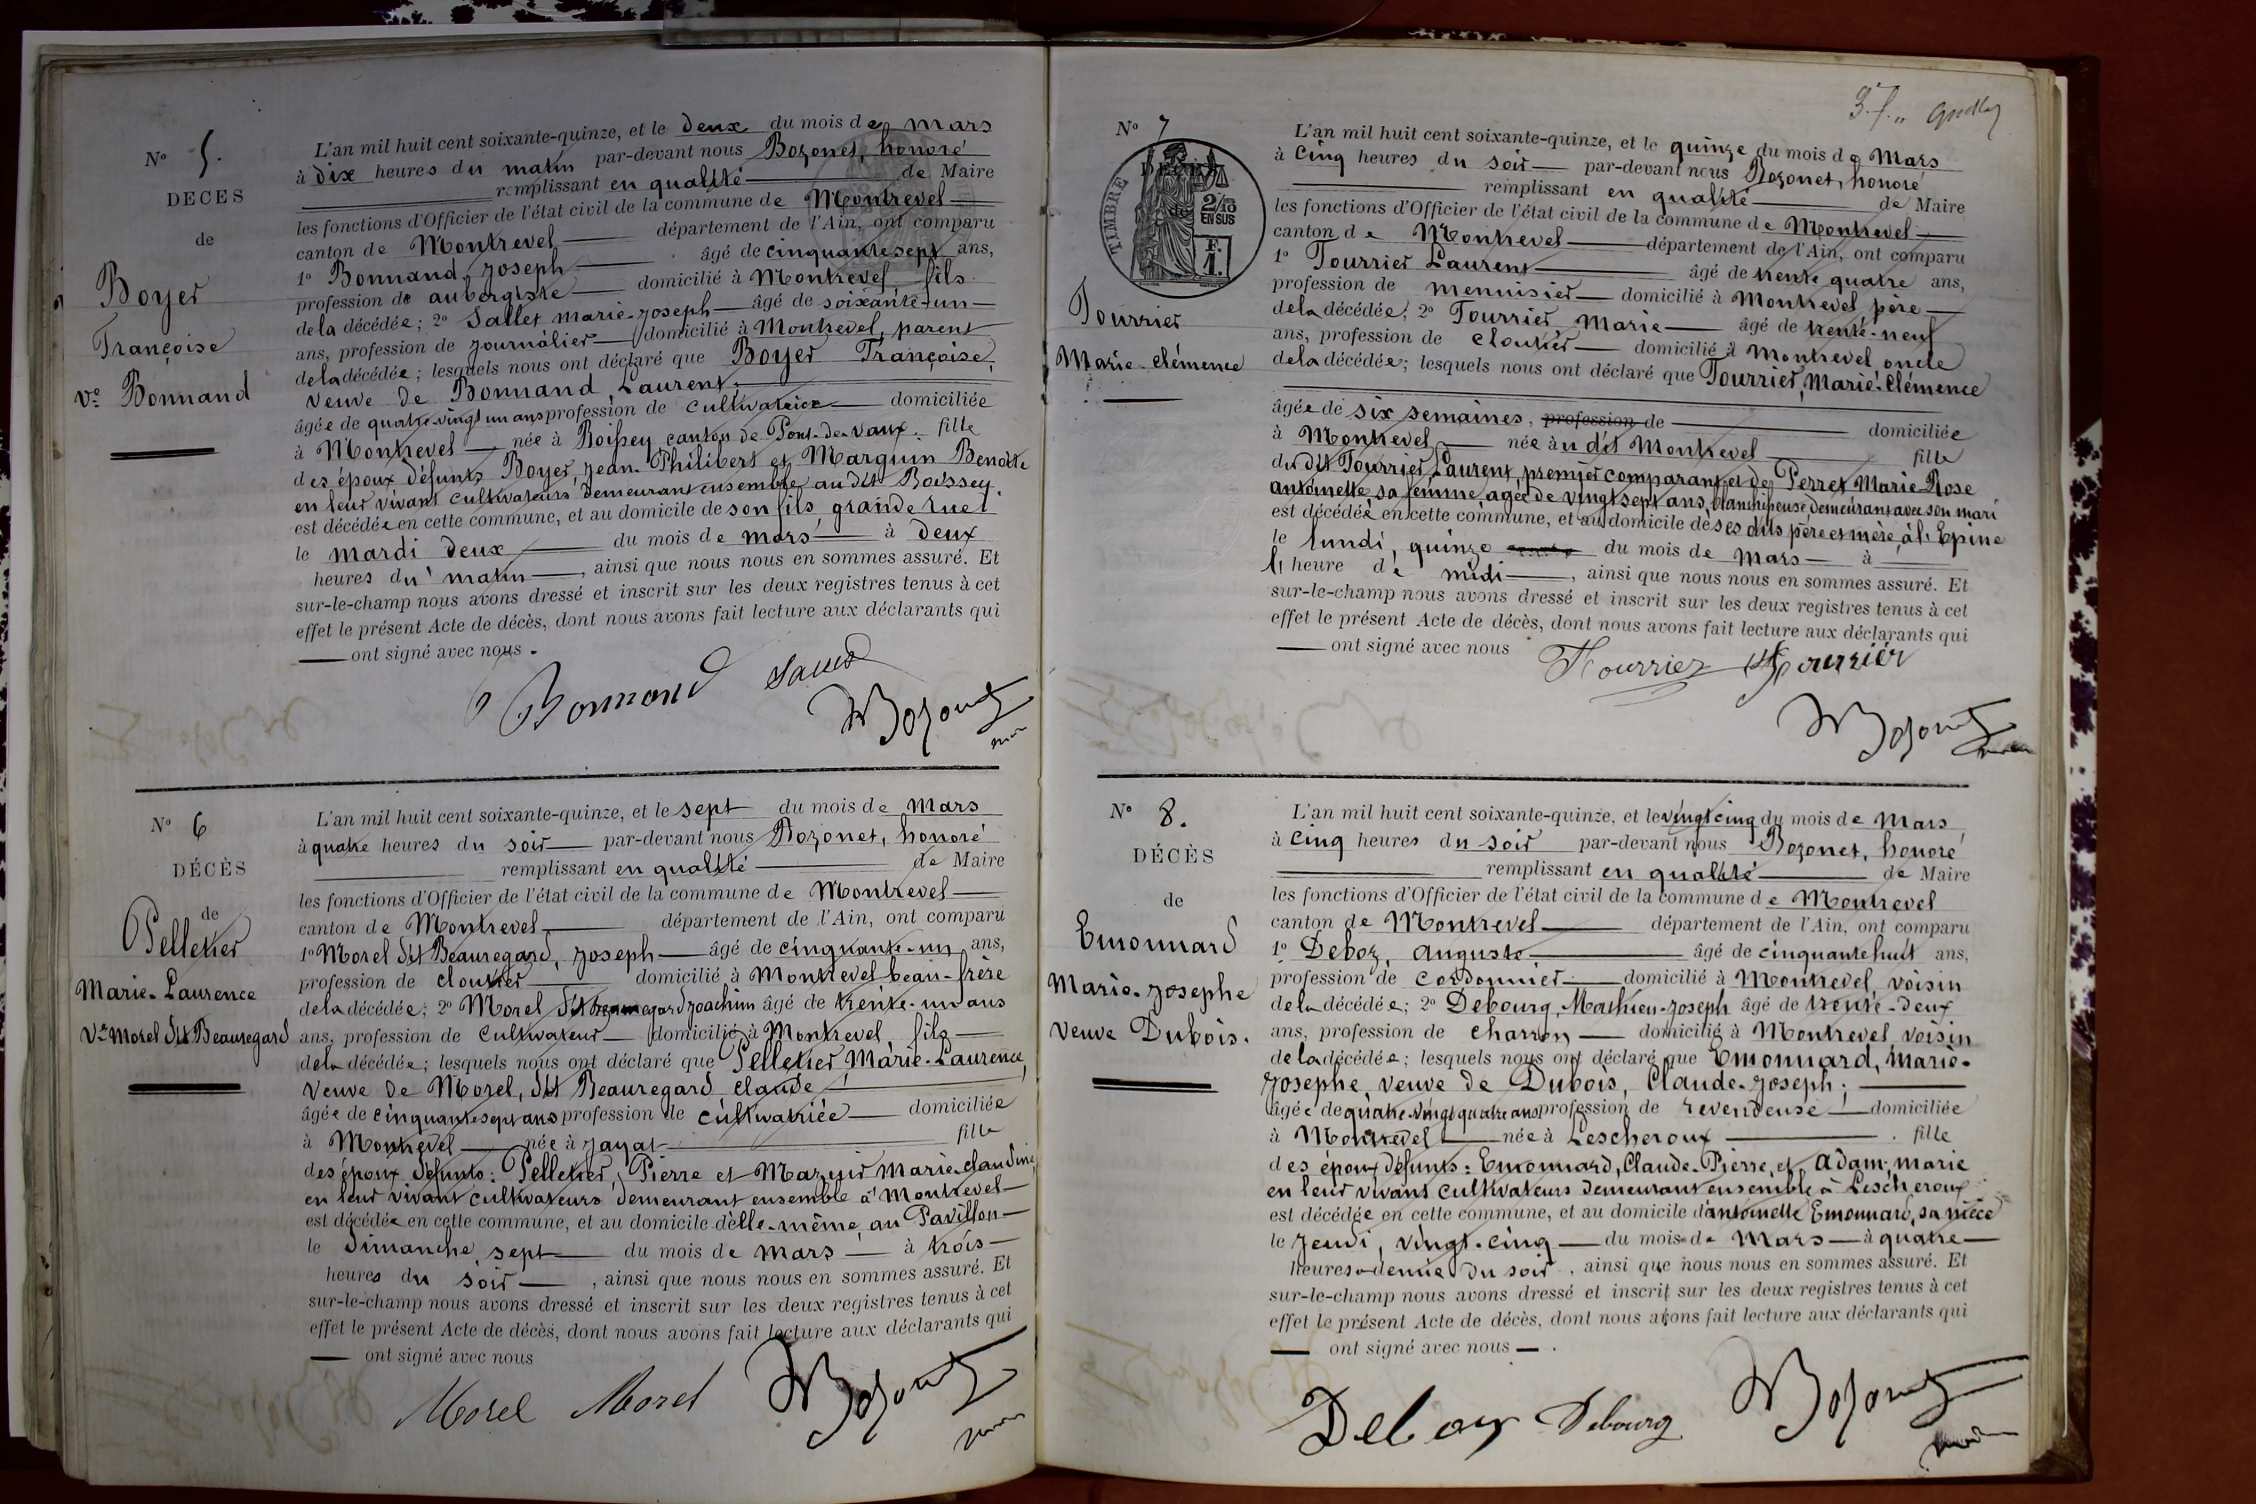 N° 5.
DECES
de
Boyer
Françoise
Ve Bonnand
L'an mil huit cent soixante-quinze, et le deux du mois de mars
à dix heures du matin par-devant nous Bozonet, honoré
remplissant en qualité de Maire
les fonctions d'Officier de l'état civil de la commune de Montrevel
canton de Montrevel département de l'Ain, ont comparu
1° Bonnand, Joseph âgé de cinquante sept ans,
profession de aubergiste domicilié à Montrevel fils
de la décédée; 2° Sallet marie-Joseph âgé de soixante-un
ans, profession de journalier domicilié à Montrevel, parent
de la décédée; lesquels nous ont déclaré que Boyer Françoise,
veuve de Bonnand, Laurent.
âgée de quatre-vingt un ans profession de cultivatrice domiciliée
à Montrevel née à Boissey canton de Pont-de-Vaux. fille
des époux défunts Boyer, Jean-Philibert et Marguin Benoite
en leur vivant cultivateurs demeurant ensemble au dit Boissey.
est décédée en cette commune, et au domicile de son fils, grande rue
le mardi deux du mois de mars à deux
heures du matin, ainsi que nous nous en sommes assuré. Et
sur-le-champ nous avons dressé et inscrit sur les deux registres tenus à cet
effet le présent Acte de décès, dont nous avons fait lecture aux déclarants qui
ont signé avec nous.
Bonnand Sallet
Bozonet
maire
N° 6
DÉCÈS
de
Pelletier
Marie-Laurence
Ve Morel dit Beauregard
L'an mil huit cent soixante-quinze, et le sept du mois de Mars
à quatre heures du soir par-devant nous Bozonet, honoré
remplissant en qualité de Maire
les fonctions d'Officier de l'état civil de la commune de Montrevel
canton de Montrevel département de l'Ain, ont comparu
1° Morel dit Beauregard, Joseph âgé de cinquante-un ans,
profession de cloutier domicilié à Montrevel beau-frère
de la décédée; 2° Morel dit beauregard joachim âgé de trente-un ans
ans, profession de cultivateur domicilié à Montrevel, fils
de la décédée; lesquels nous ont déclaré que Pelletier Marie-Laurence,
veuve de Morel, dit Beauregard claude
âgée de cinquante sept ans profession de cultivatrice domiciliée
à Montrevel née à Jayat fille
des époux défunts: Pelletier, Pierre et Mazuir Marie-claudine
en leur vivant cultivateurs demeurant ensemble à Montrevel
est décédée en cette commune, et au domicile d'elle-même, au Pavillon
le dimanche, sept du mois de mars à trois
heures du soir, ainsi que nous nous en sommes assuré. Et
sur-le-champ nous avons dressé et inscrit sur les deux registres tenus à cet
effet le présent Acte de décès, dont nous avons fait lecture aux déclarants qui
ont signé avec nous
Morel Morel Bozonet
maire
N° 7
TIMBRE
2/10
EN SUS
F.
1.
Tourrier
Marie-Clémence
L'an mil huit cent soixante-quinze, et le quinze du mois de Mars
à cinq heures du soir par-devant nous Bozonet, honoré
remplissant en qualité de Maire
les fonctions d'Officier de l'état civil de la commune de Montrevel
canton de Montrevel département de l'Ain, ont comparu
1° Tourrier Laurent âgé de trente quatre ans,
profession de menuisier domicilié à Montrevel, père
de la décédée; 2° Tourrier, Marie âgé de trente-neuf
ans, profession de cloutier domicilié à Montrevel, oncle
de la décédée; lesquels nous ont déclaré que Tourrier, Marie-Clémence
âgée de six semaines, profession de domiciliée
à Montrevel née à u dit Montrevel fille
du dit Tourrier, Laurent, premier comparant, et de Perret Marie-Rose
antoinette sa femme agée de vingt sept ans, blanchisseuse, demeurant avec son mari
est décédée en cette commune, et au domicile de ses dits père et mère, à l'Epine
le lundi, quinze du mois de mars à
heure de midi, ainsi que nous nous en sommes assuré. Et
sur-le-champ nous avons dressé et inscrit sur les deux registres tenus à cet
effet le présent Acte de décès, dont nous avons fait lecture aux déclarants qui
ont signé avec nous
Tourrier Tourrier
Bozonet
maire
N° 8.
DÉCÈS
de
Emonnard
Marie-Josephe
Veuve Dubois.
L'an mil huit cent soixante-quinze, et le vingt cinq du mois de Mars
à cinq heures du soir par-devant nous Bozonet, honoré
remplissant en qualité de Maire
les fonctions d'Officier de l'état civil de la commune de Montrevel
canton de Montrevel département de l'Ain, ont comparu
1° Deboz, Auguste âgé de cinquante huit ans,
profession de cordonnier domicilié à Montrevel, voisin
de la décédée; 2° Debourg, Mathieu-Joseph âgé de trente-deux
ans, profession de charron domicilié à Montrevel voisin
de la décédée; lesquels nous ont déclaré que Emonnard, Marie-
Josephe, veuve de Dubois, Claude-Joseph;
âgée de quatre-vingt quatre ans profession de revendeuse domiciliée
à Montrevel née à Lescheroux fille
des époux défunts: Emonnard, Claude-Pierre, et Adam, marie
en leur vivant cultivateurs demeurant ensemble à Lescheroux
est décédée en cette commune, et au domicile d'antoinette Emonnard, sa nièce
le Jeudi, vingt-cinq du mois de Mars à quatre
heures et demie du soir, ainsi que nous nous en sommes assuré. Et
sur-le-champ nous avons dressé et inscrit sur les deux registres tenus à cet
effet le présent Acte de décès, dont nous avons fait lecture aux déclarants qui
ont signé avec nous.
Deboz Debourg Bozonet
maire